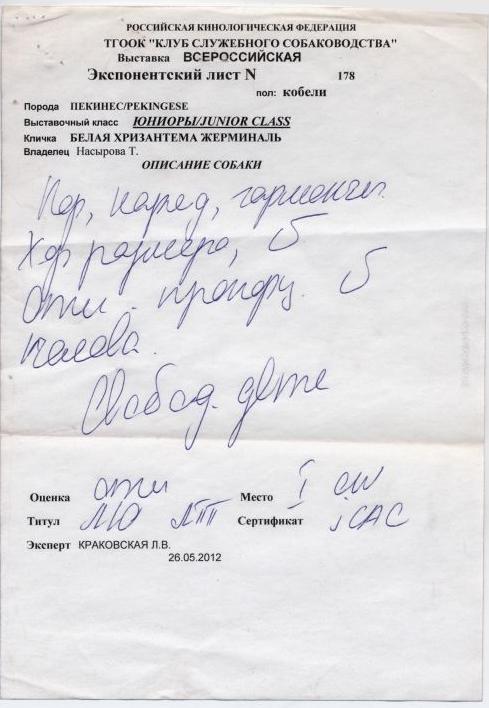 РОССИЙСКАЯ КИНОЛОГИЧЕСКАЯ ФЕДЕРАЦИЯ
ТГООК "КЛУБ СЛУЖЕБНОГО СОБАКОВОДСТВА"
Выставка ВСЕРОССИЙСКАЯ
Экспонентский лист N 178
пол: кобели
Порода ПЕКИНЕС/PEKINGESE
Выставочный класс ЮНИОРЫ/JUNIOR CLASS
Кличка БЕЛАЯ ХРИЗАНТЕМА ЖЕРМИНАЛЬ
Владелец Насырова Т.
ОПИСАНИЕ СОБАКИ
Пор, гармонич.
Хор размера,
Отл. пропорц.
голова.
Свобод. движ
Оценка отл Место I CW
Титул ЛЮ ЛПП Сертификат jCAC
Эксперт КРАКОВСКАЯ Л.В.
26.05.2012